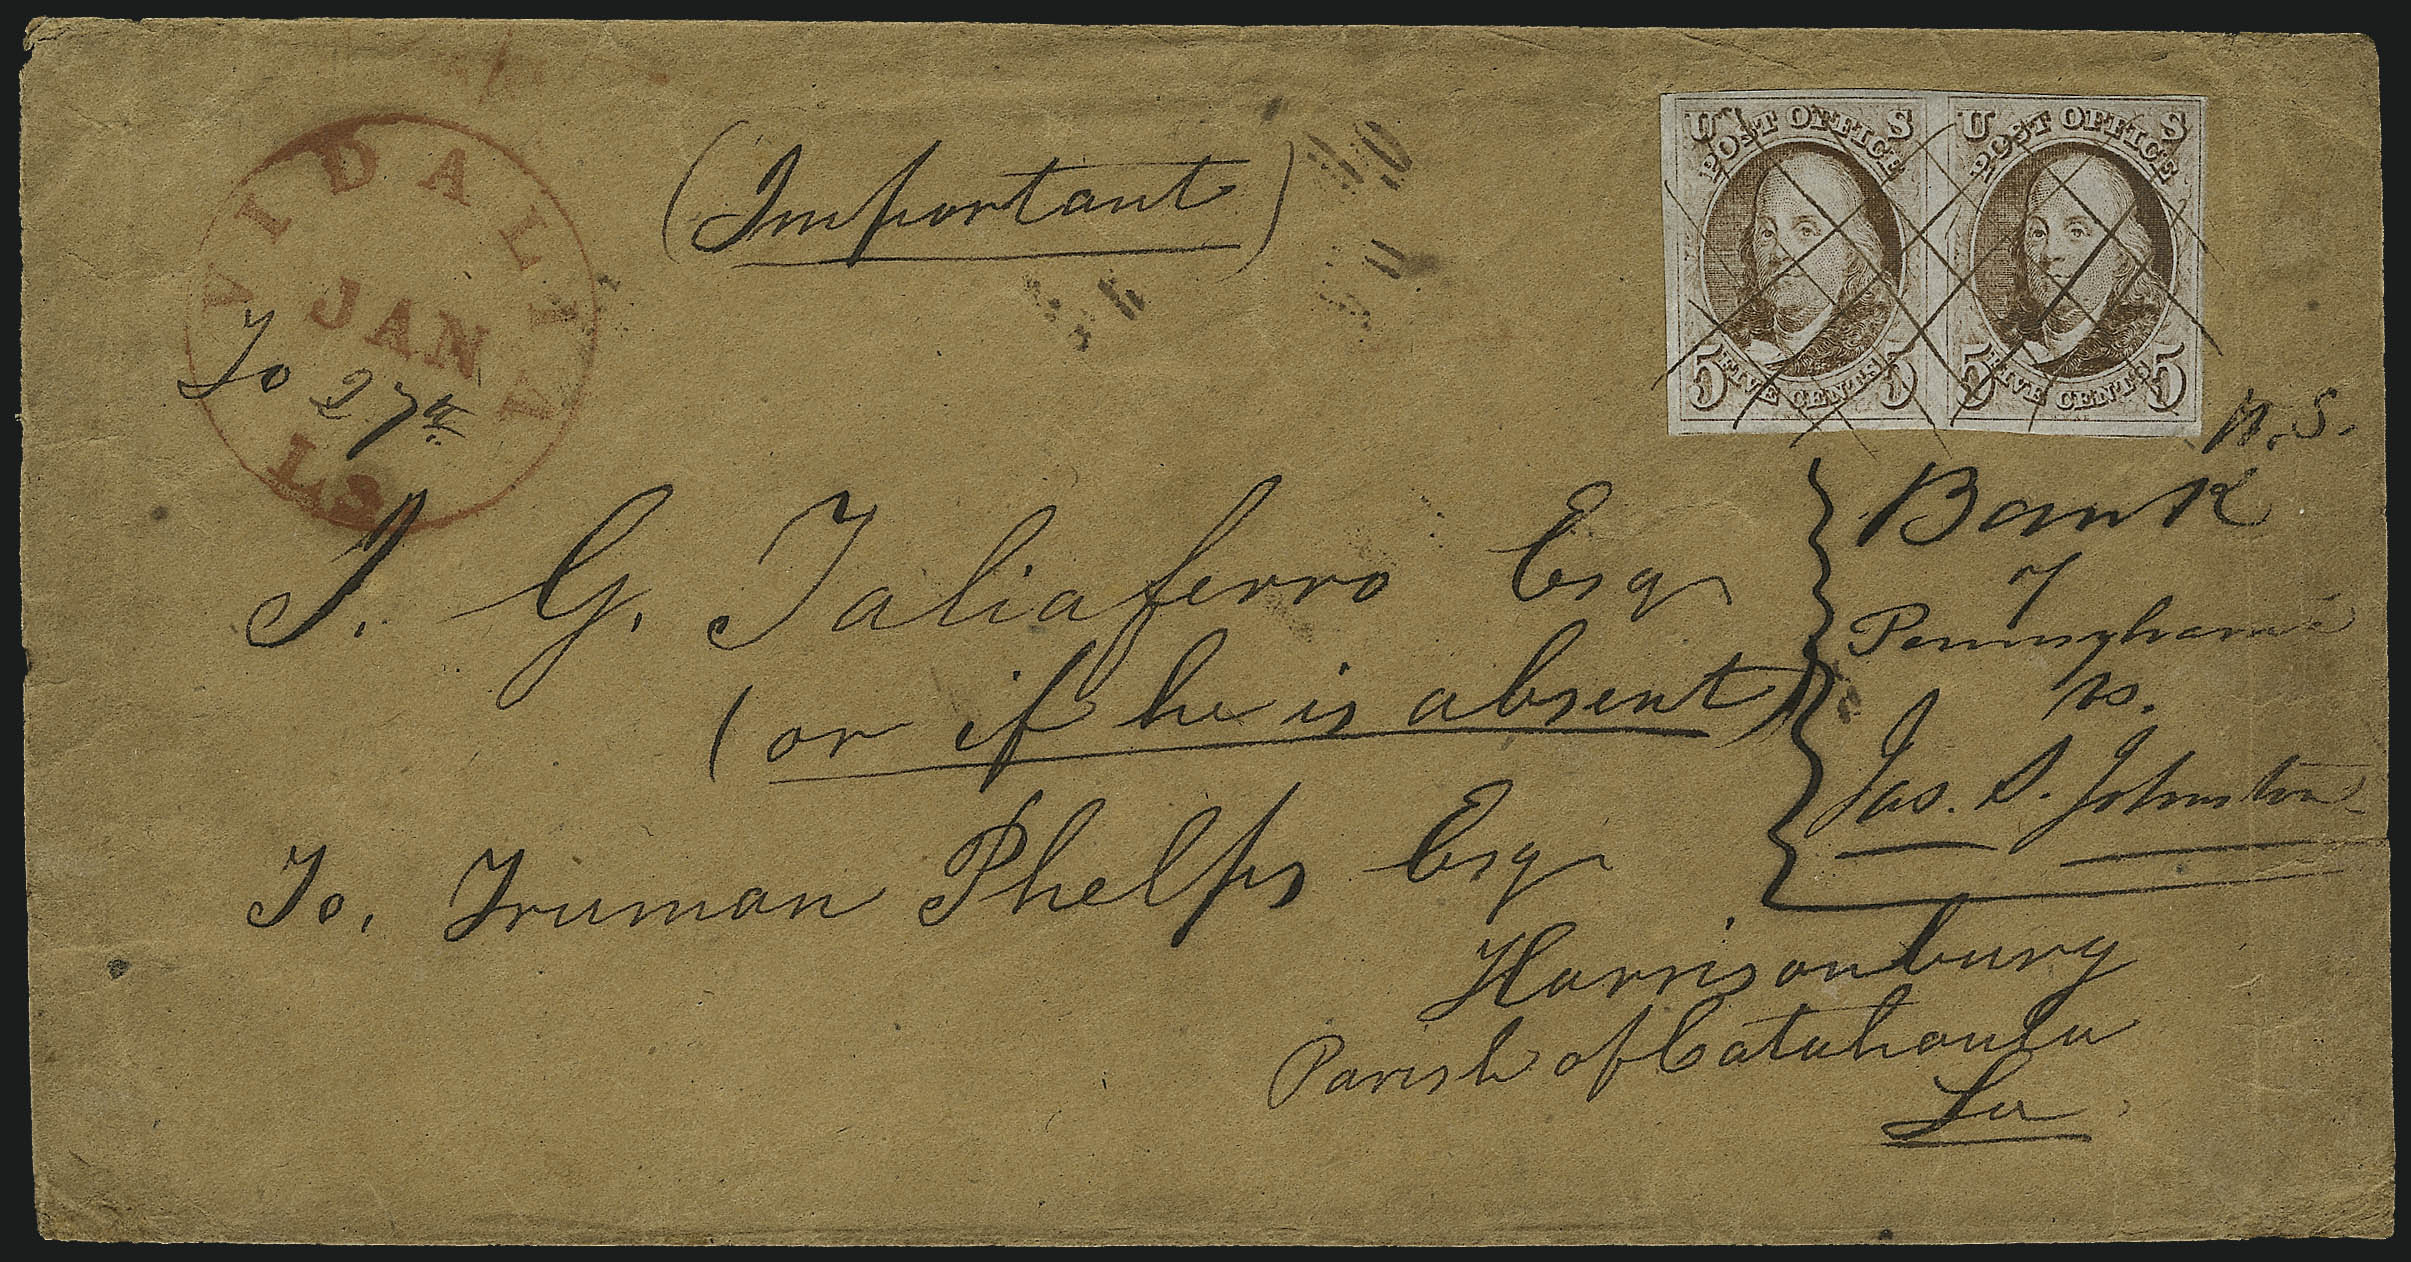 (Important)
VIDALIA
JAN
La
To 27th
U S
POST OFFICE
5 FIVE CENTS 5
U S
POST OFFICE
5 FIVE CENTS 5
J. G. Taliaferro Esq
(or if he is absent)
To, Truman Phelps Esq
Harrisonburg
Parish of Catahoula
La
Bank
of
Pennsylvania
vs.
Jas. S. Johnston